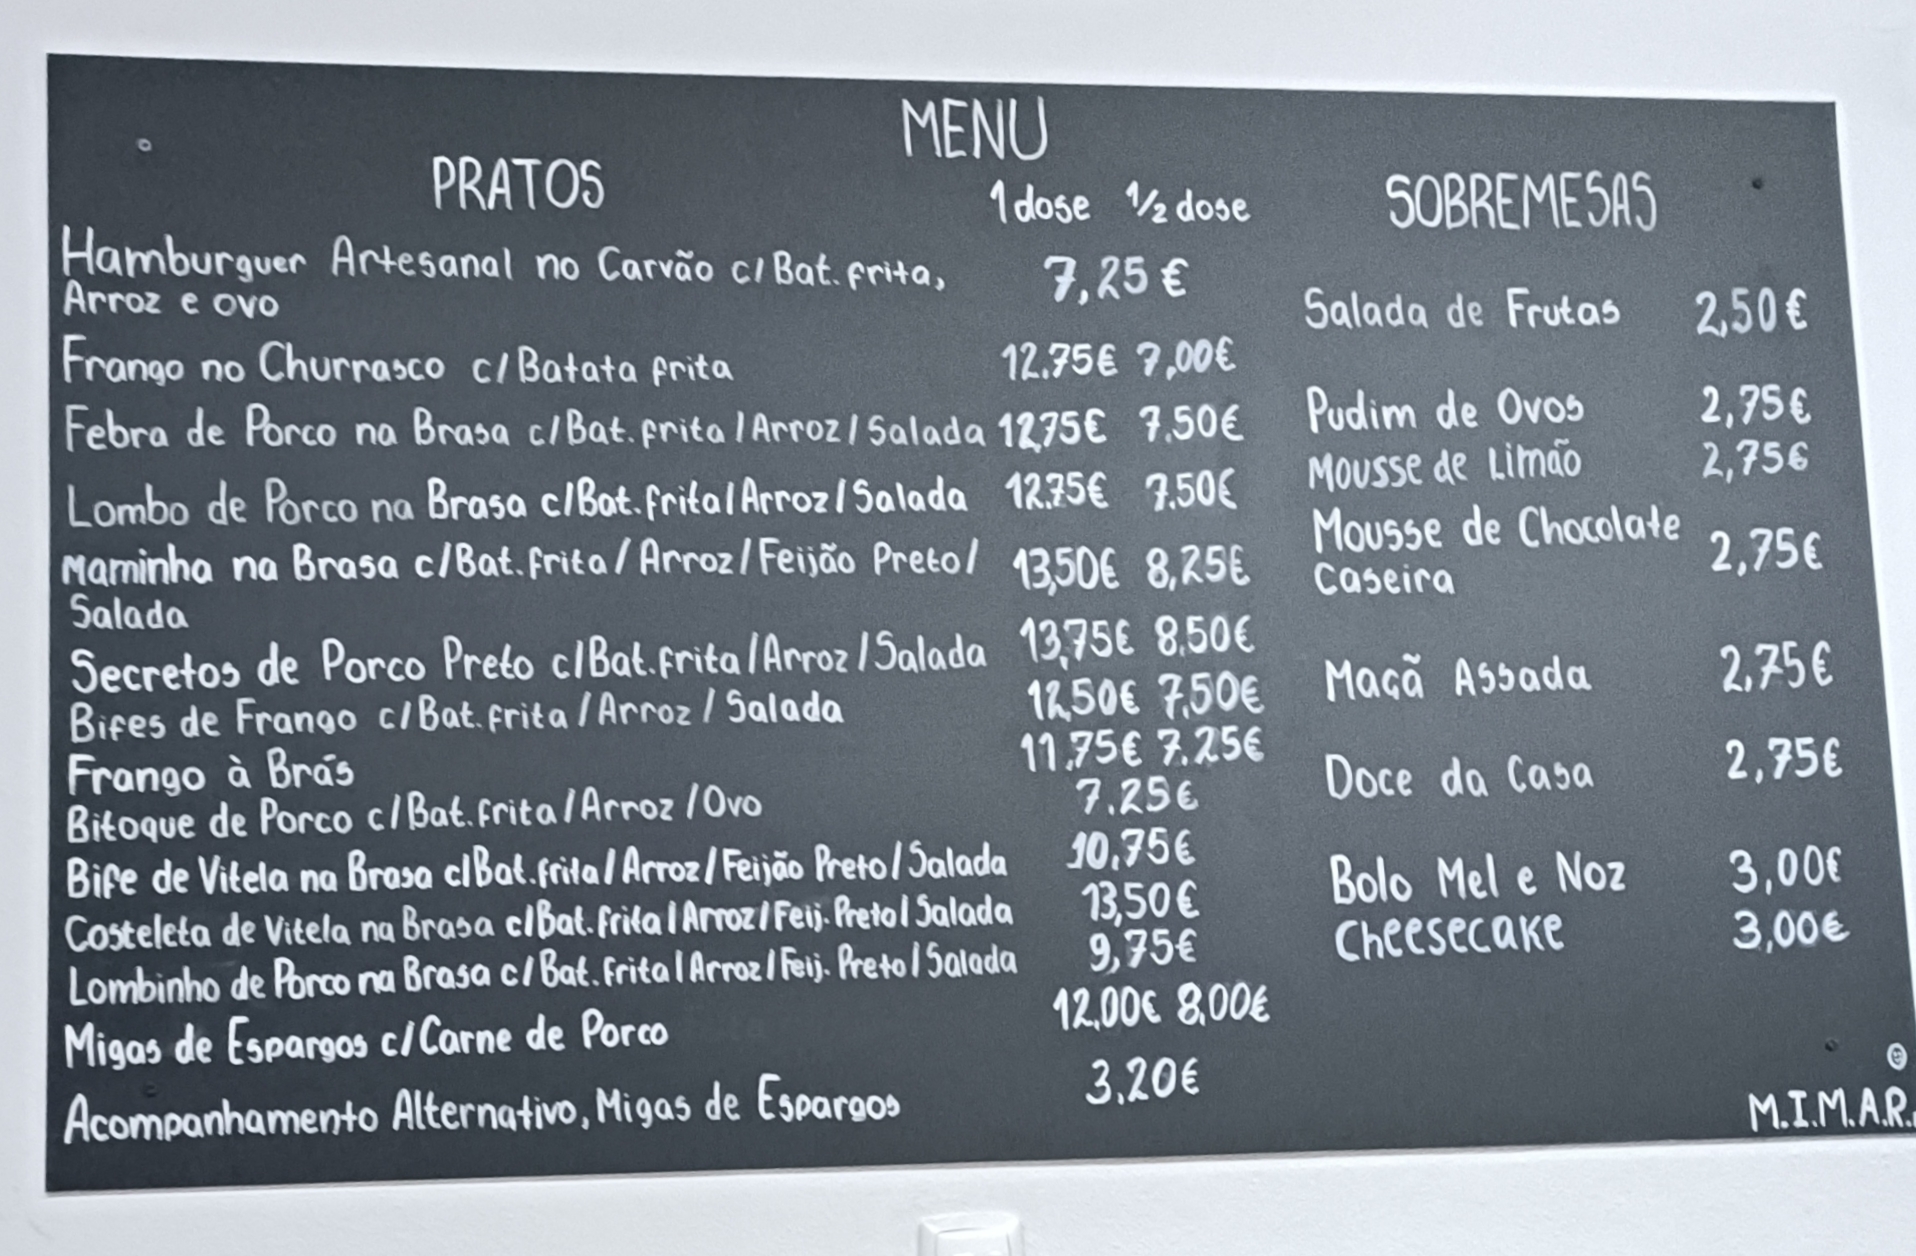 MENU
PRATOS 1 dose 1/2 dose
Hamburguer Artesanal no Carvão c/ Bat. frita, 7,25€
Arroz e ovo
Frango no Churrasco c/ Batata frita 12.75€ 7,00€
Febra de Porco na Brasa c/ Bat. frita / Arroz / Salada 12,75€ 7.50€
Lombo de Porco na Brasa c/ Bat. frita / Arroz / Salada 12.75€ 7.50€
Maminha na Brasa c/ Bat. frita / Arroz / Feijão Preto / 13,50€ 8,25€
Salada
Secretos de Porco Preto c/ Bat. frita / Arroz / Salada 13,75€ 8.50€
Bifes de Frango c/ Bat. frita / Arroz / Salada 12,50€ 7,50€
Frango à Brás 11,75€ 7.25€
Bitoque de Porco c/ Bat. frita / Arroz / Ovo 7.25€
Bife de Vitela na Brasa c/ Bat. frita / Arroz / Feijão Preto / Salada 10,75€
Costeleta de Vitela na Brasa c/ Bat. frita / Arroz / Feij. Preto / Salada 13,50€
Lombinho de Porco na Brasa c/ Bat. frita / Arroz / Feij. Preto / Salada 9,75€
Migas de Espargos c/ Carne de Porco 12,00€ 8,00€
Acompanhamento Alternativo, Migas de Espargos 3,20€
SOBREMESAS
Salada de Frutas 2,50€
Pudim de Ovos 2,75€
Mousse de Limão 2,75€
Mousse de Chocolate 2,75€
Caseira
Maçã Assada 2,75€
Doce da Casa 2,75€
Bolo Mel e Noz 3,00€
Cheesecake 3,00€
M.I.M.A.R.